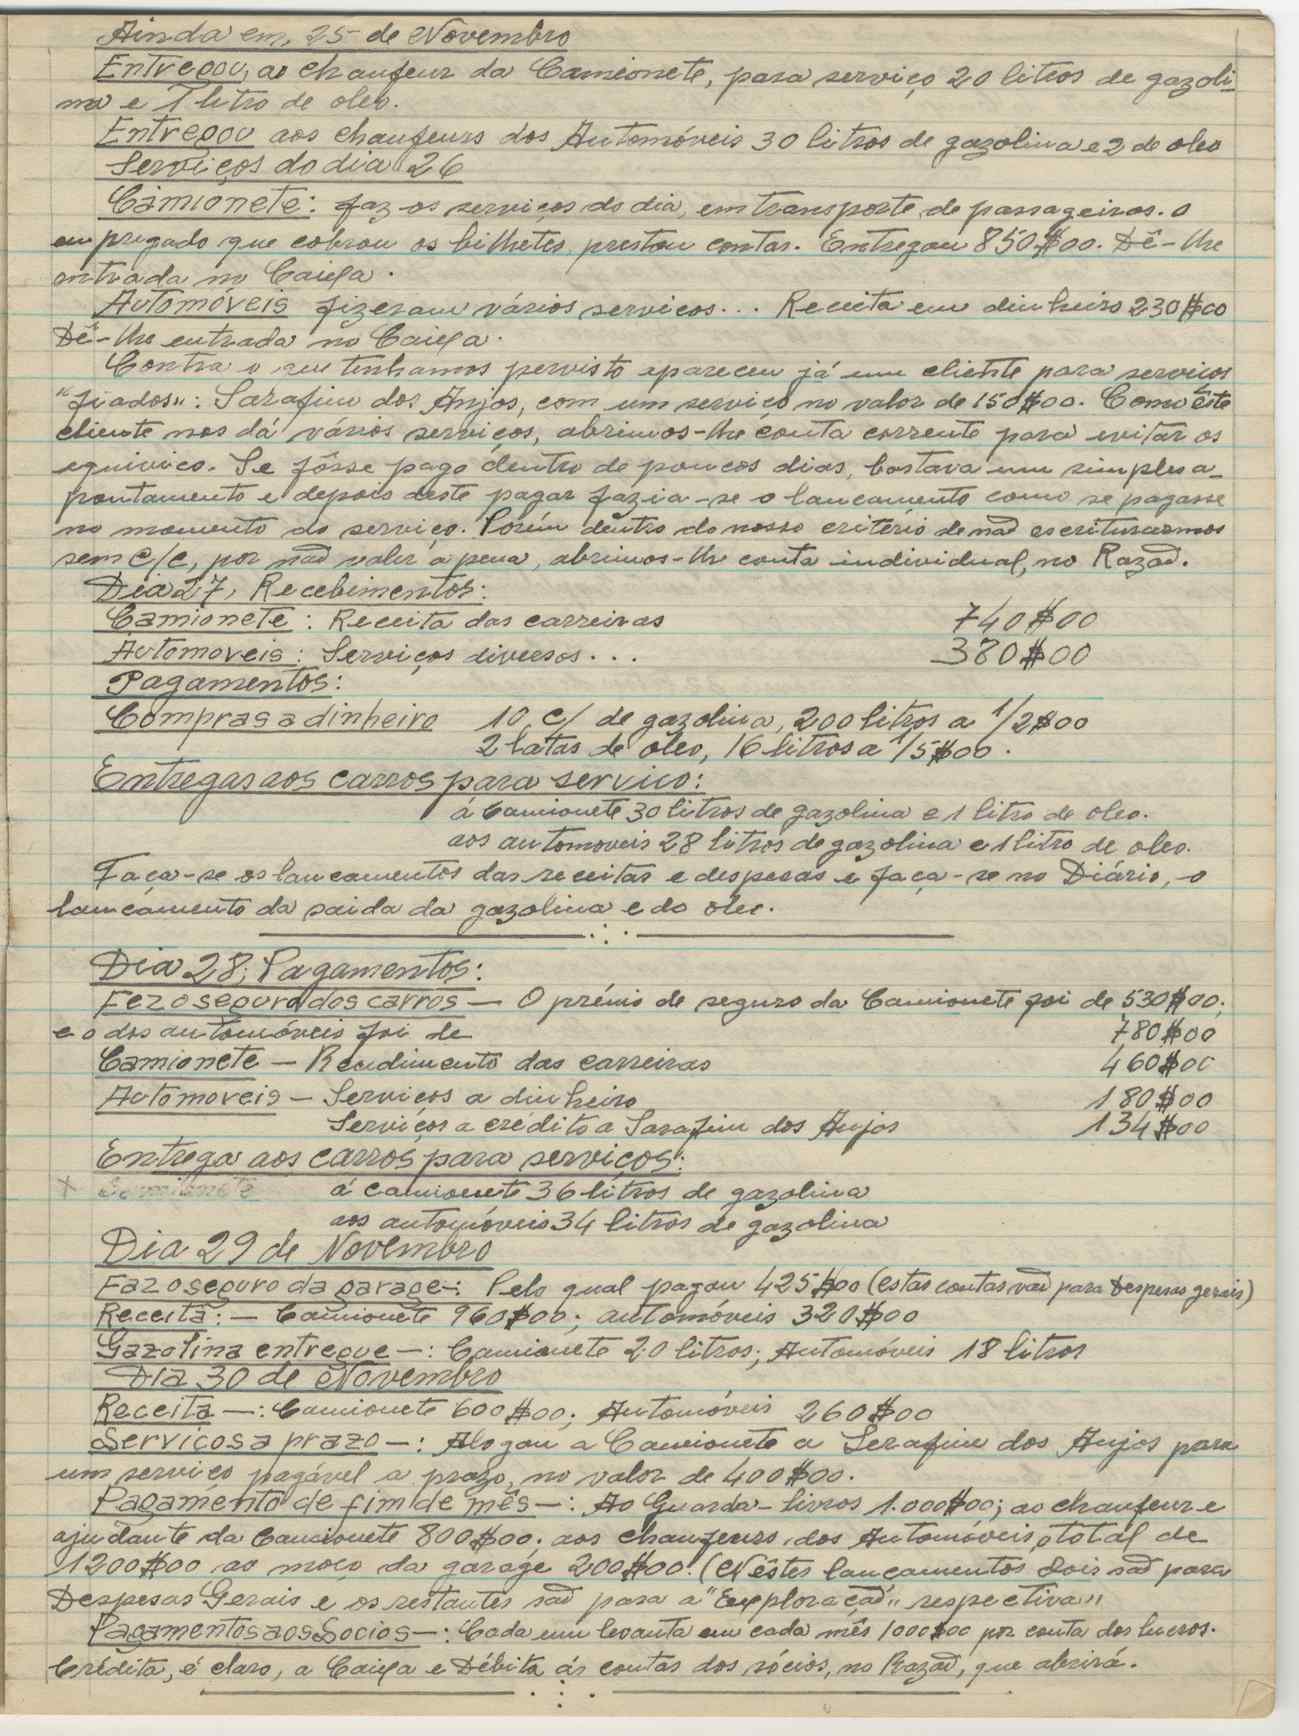 Ainda em, 25 de Novembro
Entregou, ao chaufeur da Camionete, para serviço 20 litros de gazoli-
na e 1 litro de oleo.
Entregou aos chaufeurs dos Automóveis 30 litros de gazolina e 2 de oleo
Serviços do dia 26
Camionete: faz os serviços do dia, em transporte de passageiros. O
empregado que cobrou os bilhetes, prestou contas. Entregou 850$00. Dê-lhe
entrada no Caixa.
Automóveis fizeram vários serviços... Receita em dinheiro 230$00
Dê-lhe entrada no Caixa.
Contra o que tenhamos pervisto apareceu já um cliente para serviços
"fiados": Sarafim dos Anjos, com um serviço no valor de 150$00. Como êste
cliente nos dá vários serviços, abrimos-lhe conta corrente para evitar os
equivico. Se fôsse pago dentro de poucos dias, bastava um simples a-
pontamento e depois deste pagar fazia-se o lancamento como se pagasse
no momento do serviço. Porém dentro do nosso critério de naõ escriturarmos
sem c/c, por naõ valer a pena, abrimos-lhe conta individual, no Razaõ.
Dia 27, Recebimentos:
Camionete: Receita das carreiras 740$00
Automoveis: Serviços diversos... 380$00
Pagamentos:
Compras a dinheiro 10 c/ de gazolina, 200 litros a 1/2$00
2 latas de oleo, 16 litros a 1/5$00.
Entregas aos carros para servico:
á Camionete 30 litros de gazolina e 1 litro de oleo.
aos automoveis 28 litros de gazolina e 1 litro de oleo.
Faça-se os lancamentos das receitas e despesas e faça-se no Diário, o
lançamento da saida da gazolina e do oleo.
Dia 28; Pagamentos:
Fez o seguro dos carros — O prémio de seguro da Camionete foi de 530$00;
e o dos automóveis foi de 780$00
Camionete — Rendimento das carreiras 460$00
Automoveis — Serviços a dinheiro 180$00
Serviços a crédito a Sarafim dos Anjos 134$00
Entrega aos carros para serviços:
x á camionete 36 litros de gazolina
aos automóveis 34 litros de gazolina
Dia 29 de Novembro
Faz o seguro da garage-: Pelo qual pagou 425$00 (estas contas vaõ para Despesas gerais)
Receita: — Camionete 960$00; automóveis 320$00
Gazolina entregue —: Camionete 20 litros; Automóveis 18 litros
Dia 30 de Novembro
Receita —: Camionete 600$00; Automóveis 260$00
Serviços a prazo —: Alogou a Camionete a Serafim dos Anjos para
um serviço pagável a prazo, no valor de 400$00.
Pagamento de fim de mês —: Ao Guarda-livros 1.000$00; ao chaufeur e
ajudante da Camionete 800$00; aos chaufeurs dos Automóveis, total de
1200$00 ao moço da garage 200$00. (Nêstes lançamentos dois saõ para
Despesas Gerais e os restantes saõ para a "Exploraçaõ" respectiva"
Pagamentos aos Socios —: Cada um levanta em cada mês 1000$00 por conta dos lucros.
Crédita, é claro, a Caixa e Débita ás contas dos sócios, no Razaõ, que abrirá.